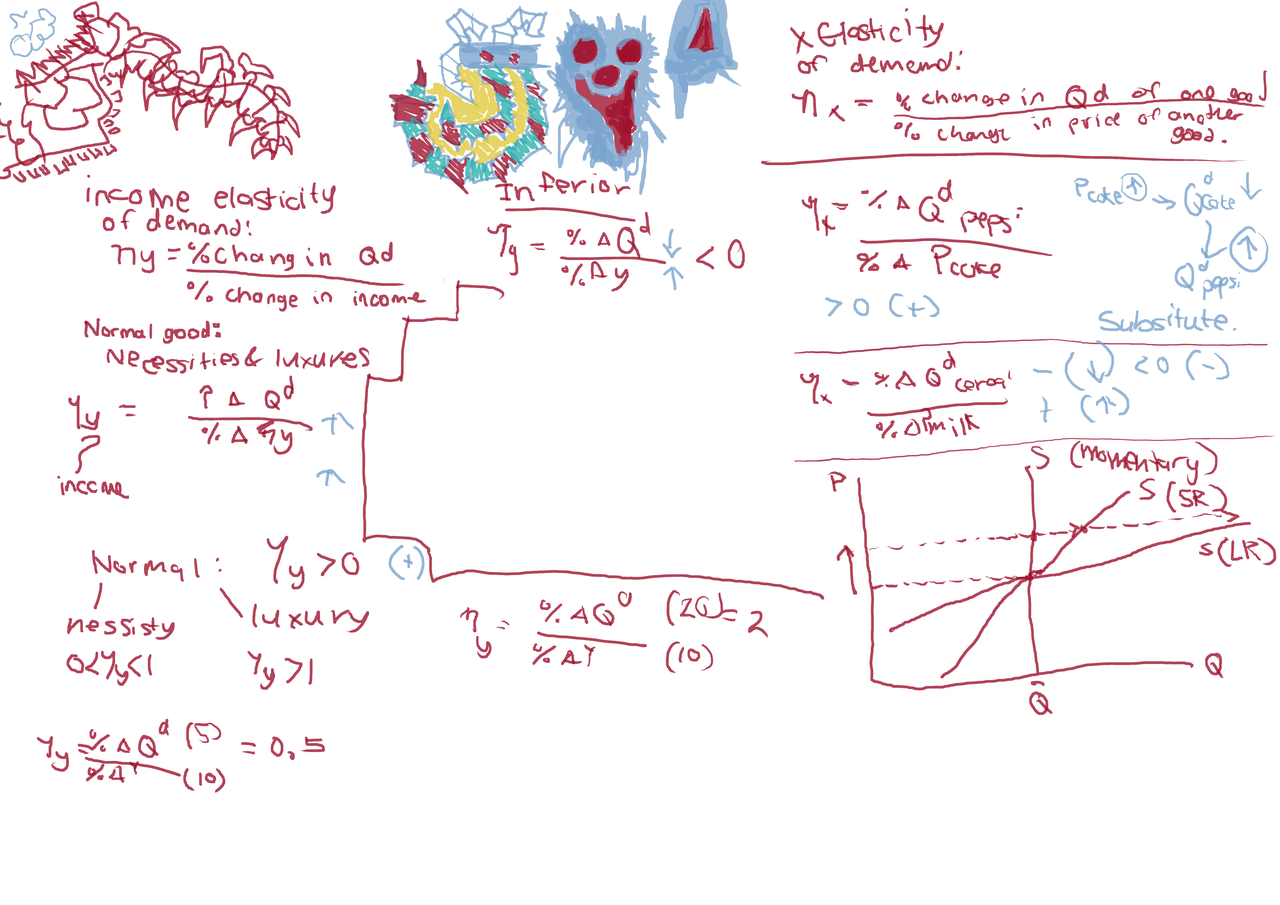 income elasticity
of demand:
ny = % Chang in Qd
% change in income
Normal good:
Necessities & luxures
η y = Δ Q d ↑
% Δ y ↑
income
Normal : η y > 0 (+)
nessisty luxury
0<η y<1 η y >1
η y = % Δ Q d (5) = 0.5
% Δ Y (10)
Inferior
η y = % Δ Q d ↓ < 0
% Δ y ↑
η y = % Δ Q d (20) = 2
% Δ Y (10)
x Elasticity
of demend:
n x = % change in Qd of one good
% change in price of another
good.
η x = % Δ Q d pepsi
% Δ P coke
> 0 (+)
P coke ↑ → Q d coke ↓
↓ ↑
Q d pepsi
Subsitute.
η x - % Δ Q d cereal - (↓) < 0 (-)
% Δ P milk + (↑)
S (momentary)
P
S (SR)
S (LR)
Q
Q̄